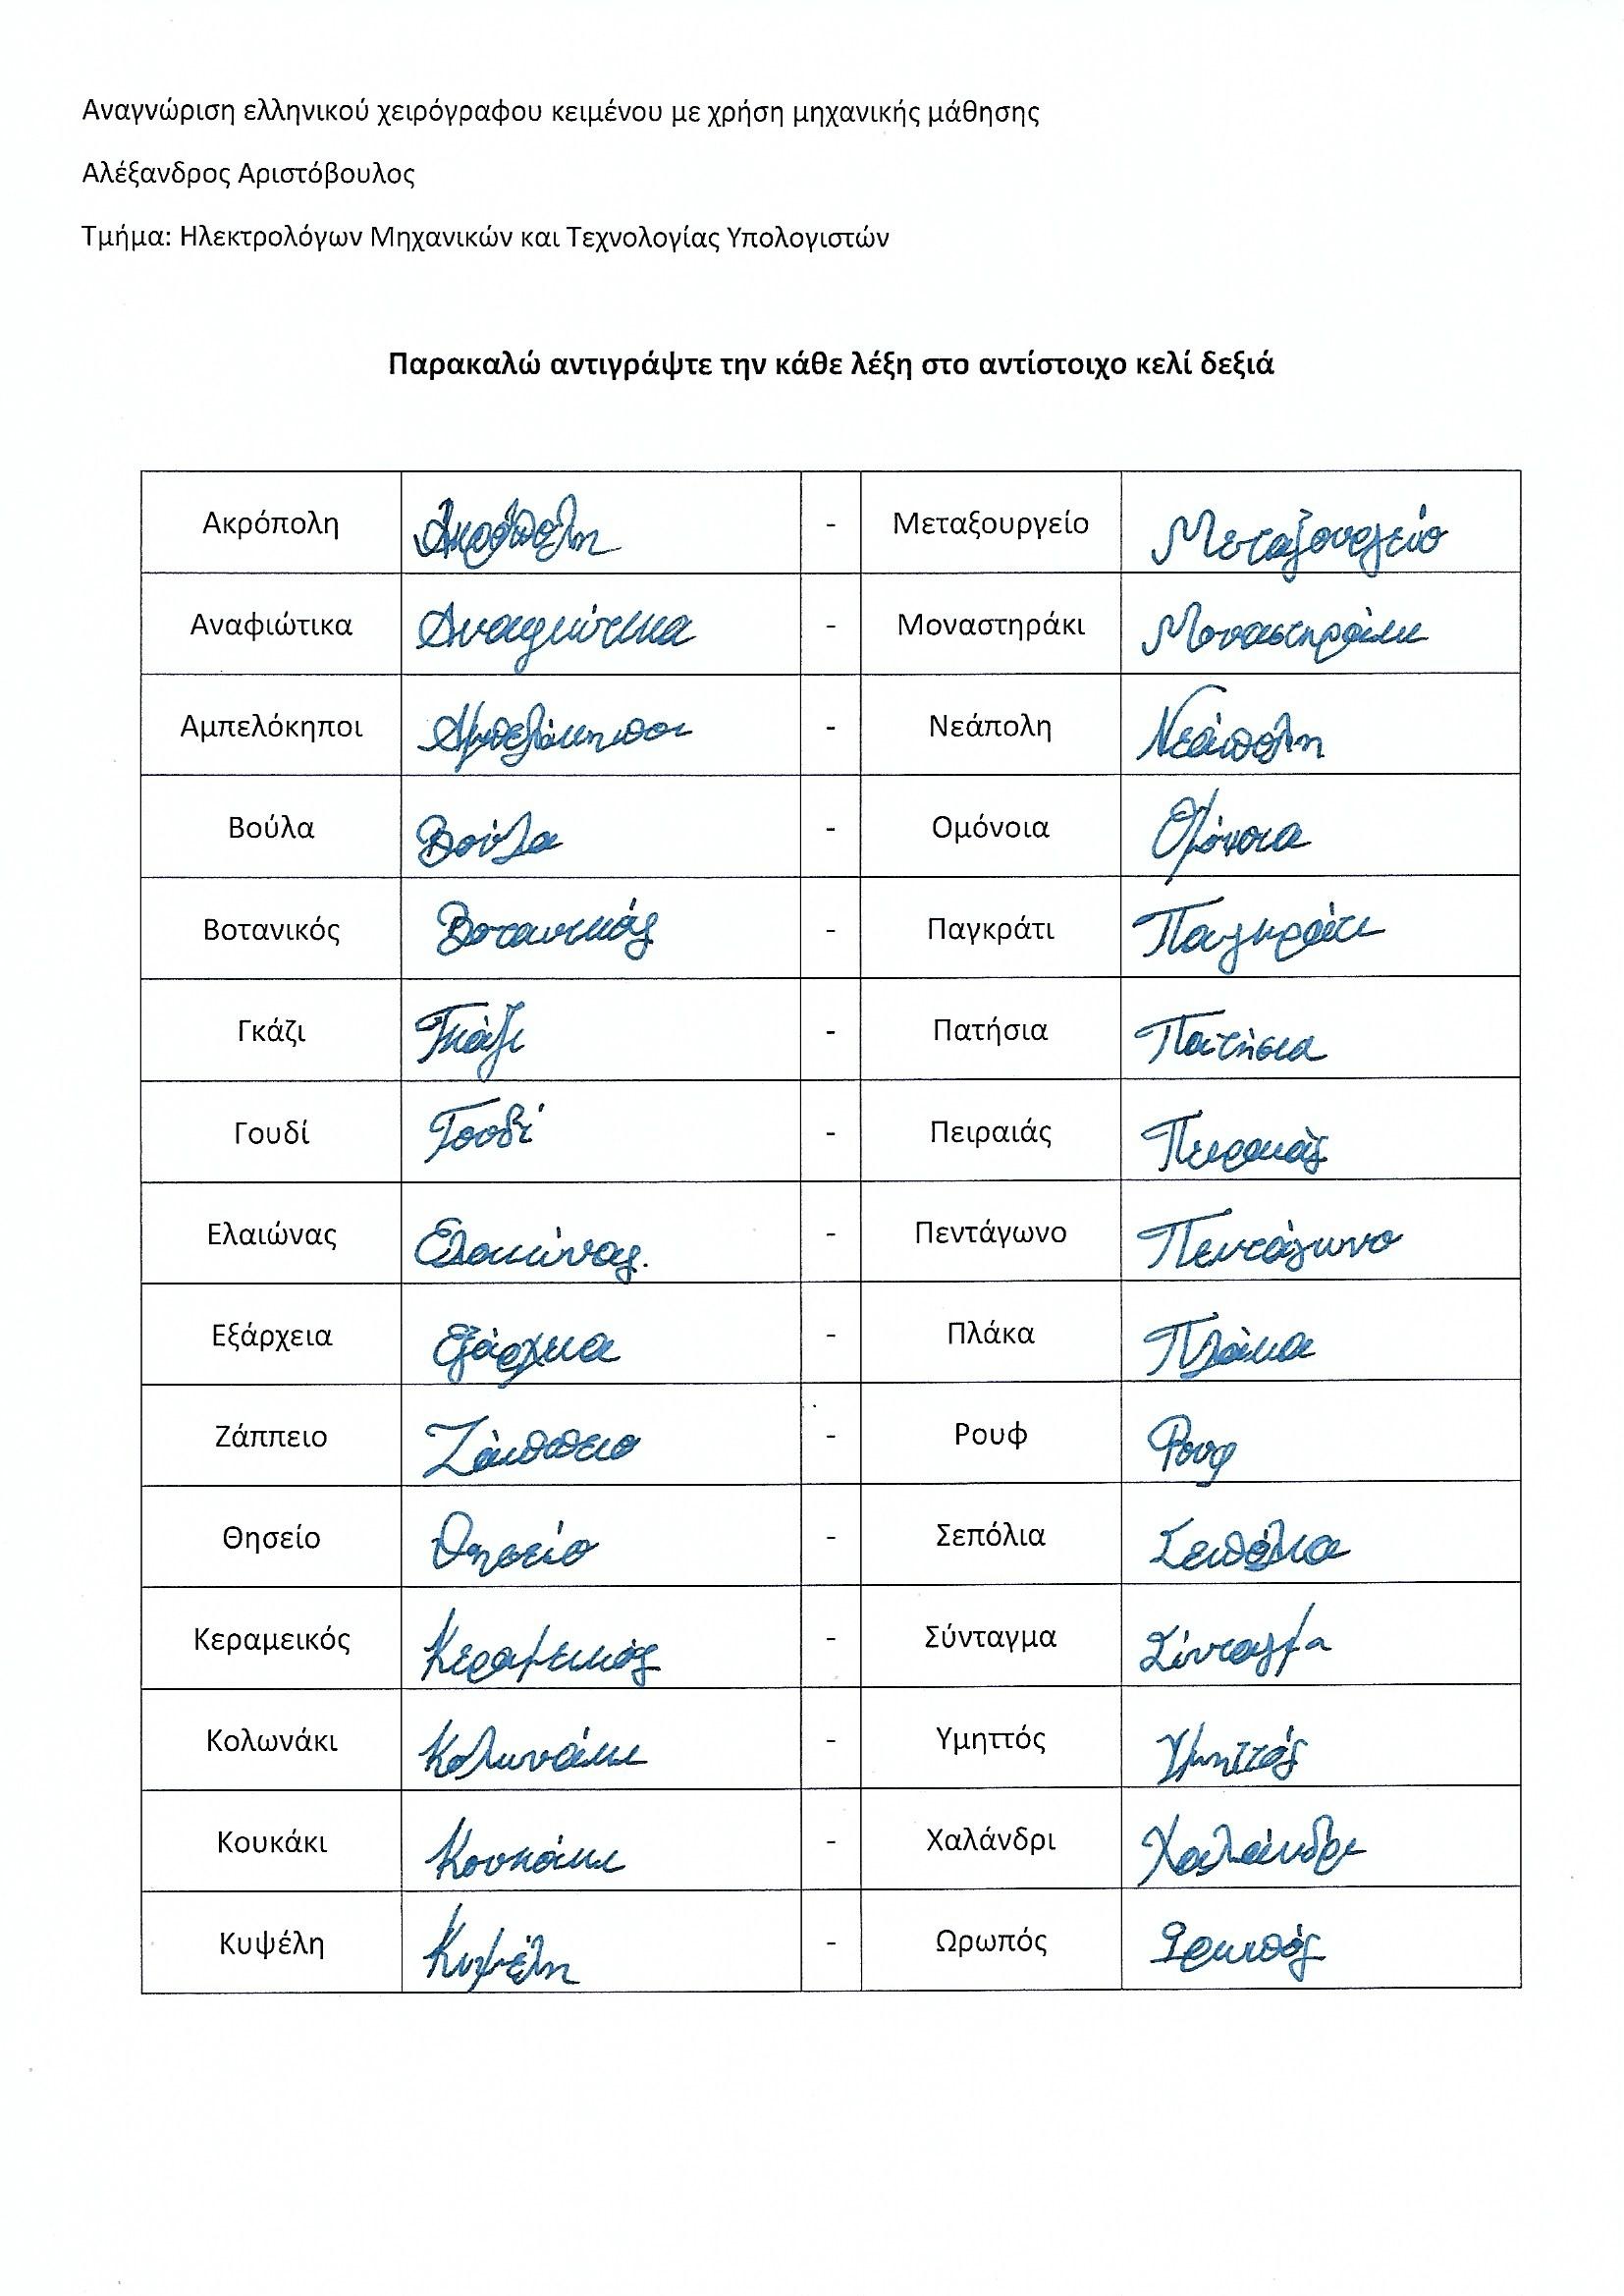 Αναγνώριση ελληνικού χειρόγραφου κειμένου με χρήση μηχανικής μάθησης
Αλέξανδρος Αριστόβουλος
Τμήμα: Ηλεκτρολόγων Μηχανικών και Τεχνολογίας Υπολογιστών
Παρακαλώ αντιγράψτε την κάθε λέξη στο αντίστοιχο κελί δεξιά
Ακρόπολη Ακρόπολη - Μεταξουργείο Μεταξουργείο
Αναφιώτικα Αναφιώτικα - Μοναστηράκι Μοναστηράκι
Αμπελόκηποι Αμπελόκηποι - Νεάπολη Νεάπολη
Βούλα Βούλα - Ομόνοια Ομόνοια
Βοτανικός Βοτανικός - Παγκράτι Παγκράτι
Γκάζι Γκάζι - Πατήσια Πατήσια
Γουδί Γουδί - Πειραιάς Πειραιάς
Ελαιώνας Ελαιώνας. - Πεντάγωνο Πεντάγωνο
Εξάρχεια Εξάρχεια - Πλάκα Πλάκα
Ζάππειο Ζάππειο - Ρουφ Ρουφ
Θησείο Θησείο - Σεπόλια Σεπόλια
Κεραμεικός Κεραμεικός - Σύνταγμα Σύνταγμα
Κολωνάκι Κολωνάκι - Υμηττός Υμηττός
Κουκάκι Κουκάκι - Χαλάνδρι Χαλάνδρι
Κυψέλη Κυψέλη - Ωρωπός Ωρωπός